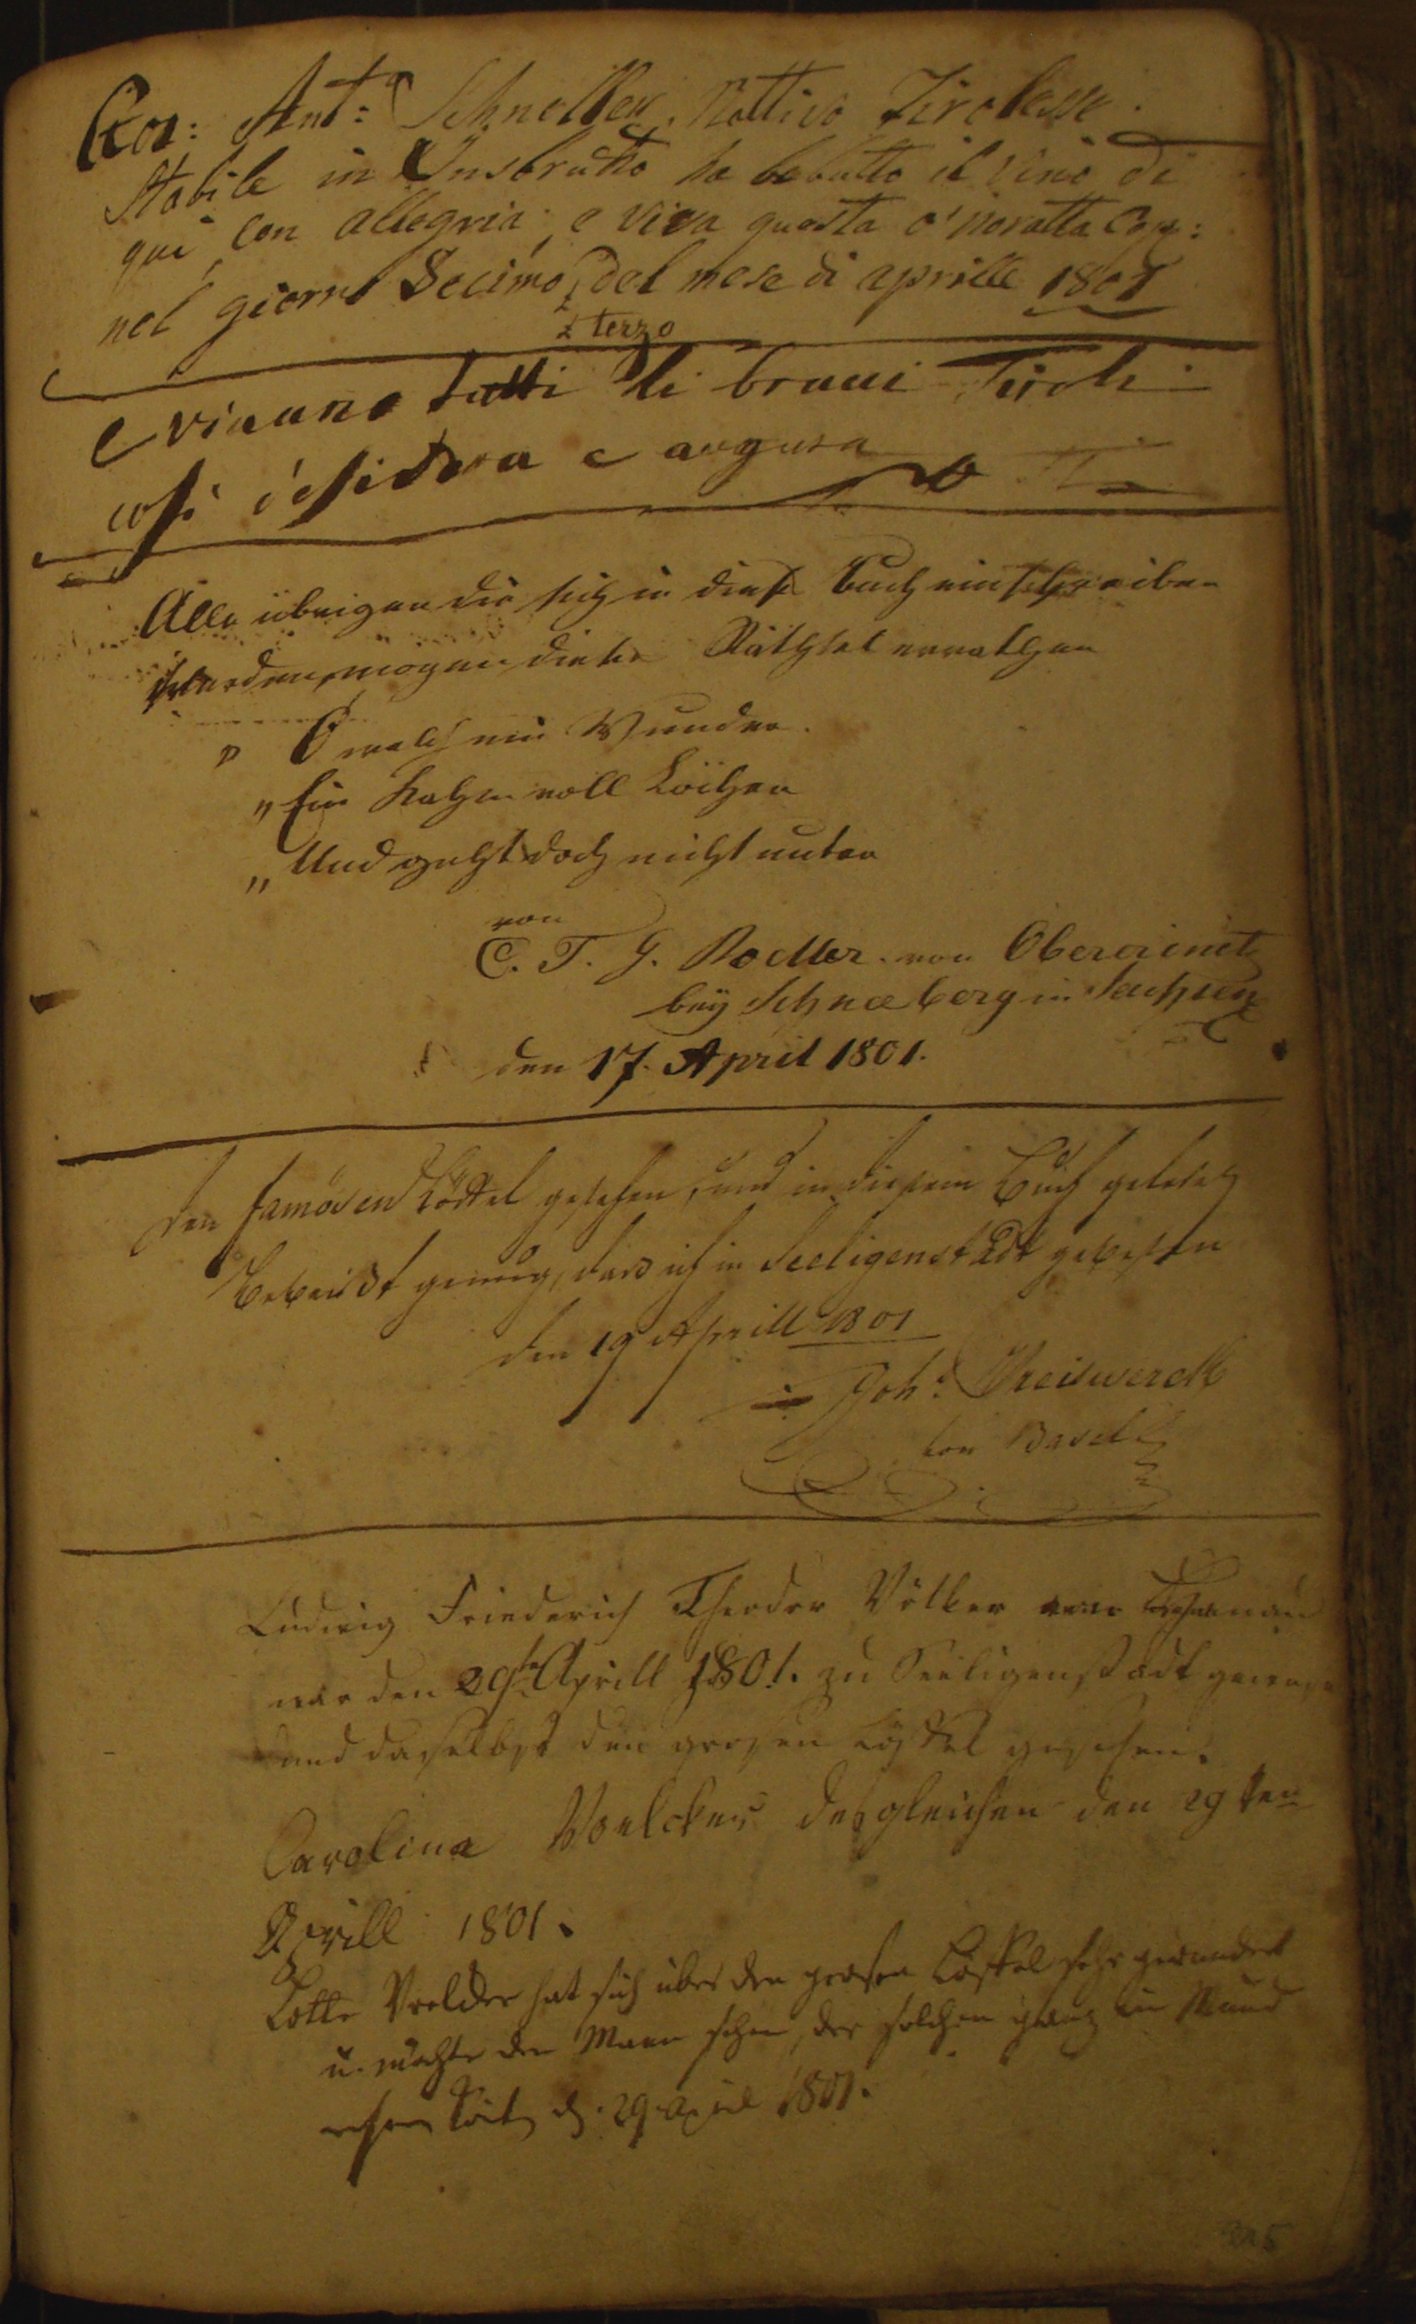 Ant: Schneller, Nattivo Tirolesse.
Stabile in Insbrukko ha bebutto il vino di
qui con allegria; e viva questa o'noratta Cop:
nel giorno Decimo del mese di aprille 1801
terzo
e vivano tutti li bravi Tiroli
cosi desidera e augura
Alle übrigen die sich in diese Buch einschreiben
werden, mögen diese Räthsel errathen
„ O welch ein Wunder.
„ Ein Kahn voll Löcher
„ Und geht doch nicht unter
von
C. T. G. von Obercrinitz
bey Schneeberg in Sachsen
den 17. April 1801.
den famosen Löffel gesehen, und in diesem Buch gelesen
Beweist genug, dass ich in Seeligenstadt gewesen
den 19 Aprill 1801
Joh: Preiswerck
von Basel
Ludwig Friederich Theodor Völker
war den 29ten Aprill 1801. zu Seeligenstadt gewesen
und daselbst den grosen Löffel gesehen.
Carolina Voelcker desgleichen den 29 ten
Aprill 1801.
Lotte Voelcker hat sich über den grosen Löffel sehr gewundert
u. möchte den Mann sehen, der solchen ganz in Mund
d. 29. April 1801.